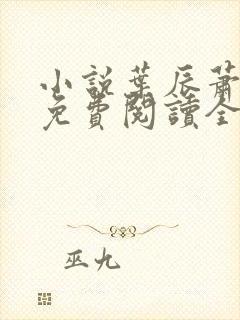 小説葉辰蕭
免費閱讀全
巫九